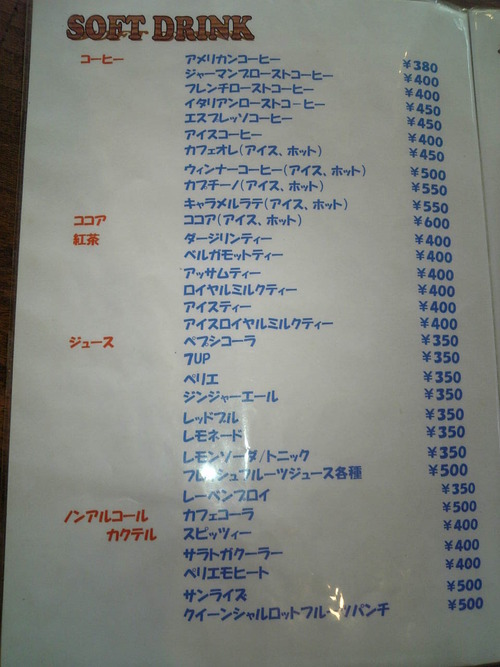 SOFT DRINK
コーヒー アメリカンコーヒー ¥380
ジャーマンブローストコーヒー ¥400
フレンチローストコーヒー ¥400
イタリアンローストコーヒー ¥450
エスプレッソコーヒー ¥450
アイスコーヒー ¥400
カフェオレ(アイス、ホット) ¥450
ウィンナーコーヒー(アイス、ホット) ¥500
カプチーノ(アイス、ホット) ¥550
キャラメルラテ(アイス、ホット) ¥550
ココア ココア(アイス、ホット) ¥600
紅茶 ダージリンティー ¥400
ベルガモットティー ¥400
アッサムティー ¥400
ロイヤルミルクティー ¥400
アイスティー ¥400
アイスロイヤルミルクティー ¥400
ジュース ペプシコーラ ¥350
7UP ¥350
ペリエ ¥350
ジンジャーエール ¥350
レッドブル ¥350
レモネード ¥350
レモンソーダ/トニック ¥350
フレッシュフルーツジュース各種 ¥500
レーベンブロイ ¥350
ノンアルコール カフェコーラ ¥500
カクテル スピッツィー ¥400
サラトガクーラー ¥400
ペリエモヒート ¥400
サンライズ ¥500
クイーンシャルロットフルーツパンチ ¥500